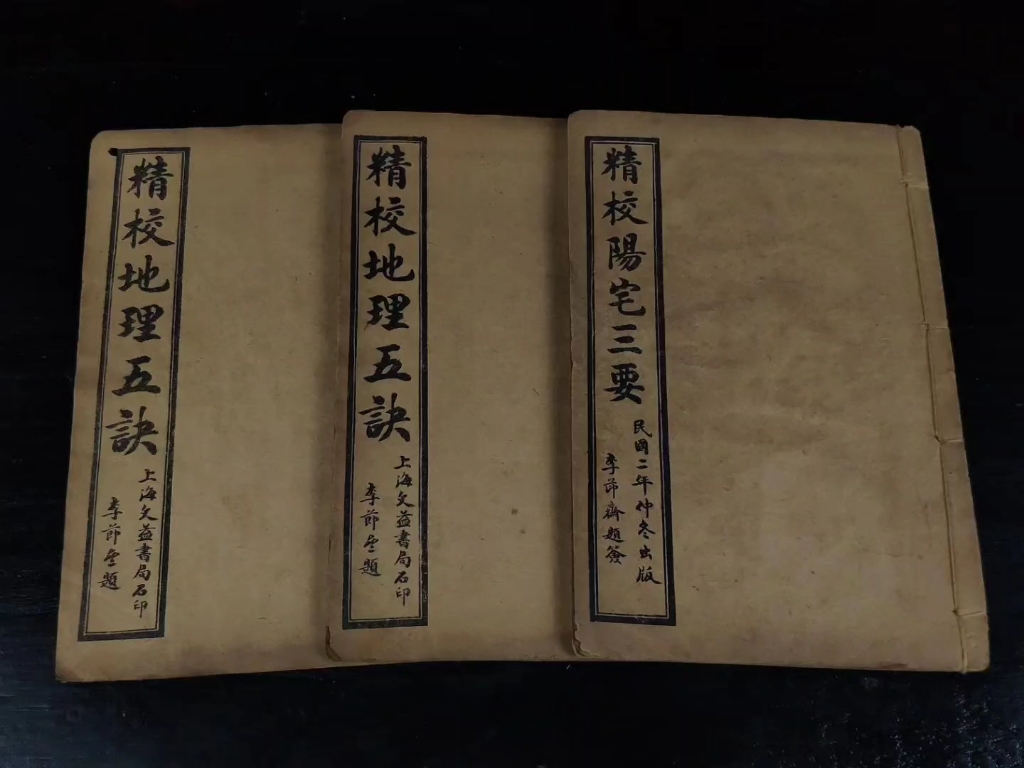 精校地理五訣
上海文益書局石印
李節堂題
精校地理五訣
上海文益書局石印
李節堂題
精校陽宅三要
民國二年仲冬出版
李節齋題簽